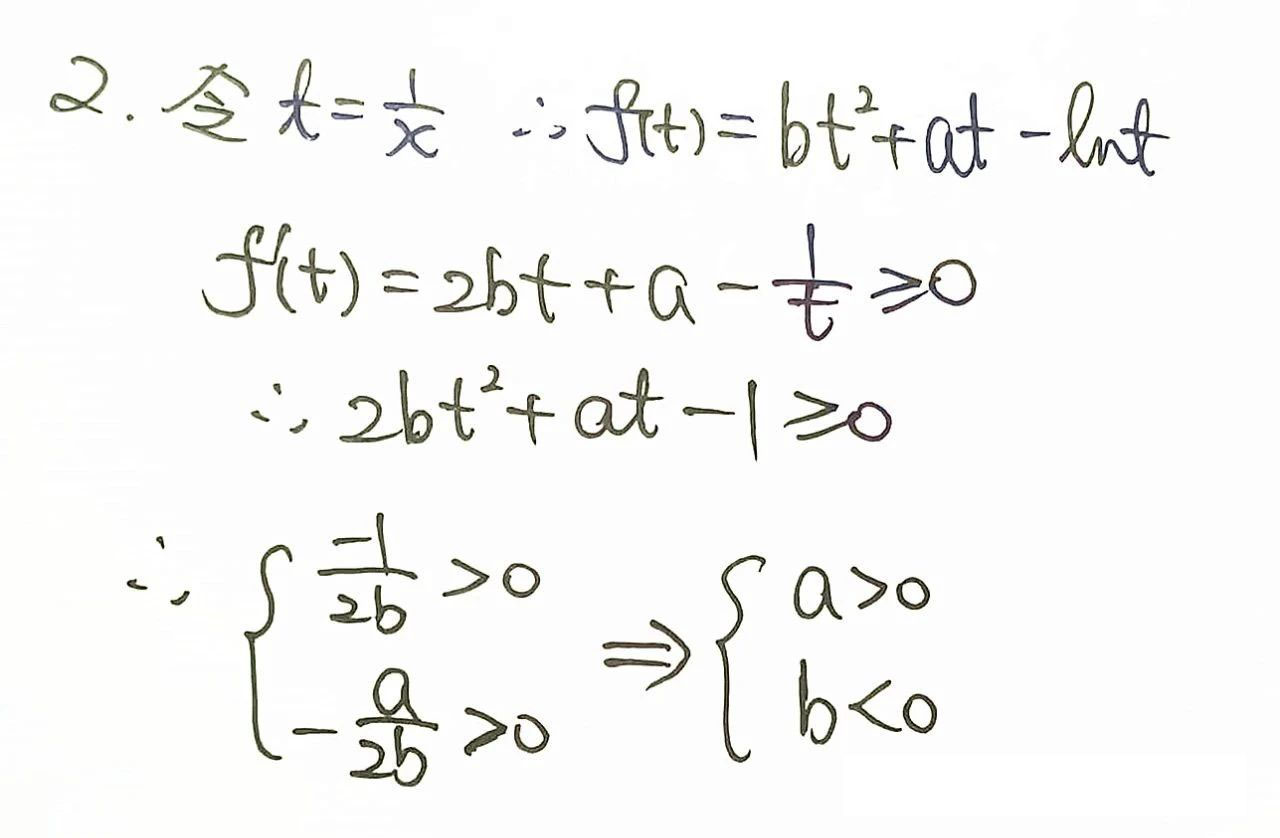 2. 令 t = 1/x ∴ f(t) = bt² + at - lnt
f'(t) = 2bt + a - 1/t ≥ 0
∴ 2bt² + at - 1 ≥ 0
∴ { -1/2b > 0 ⇒ { a > 0
- a/2b > 0 b < 0